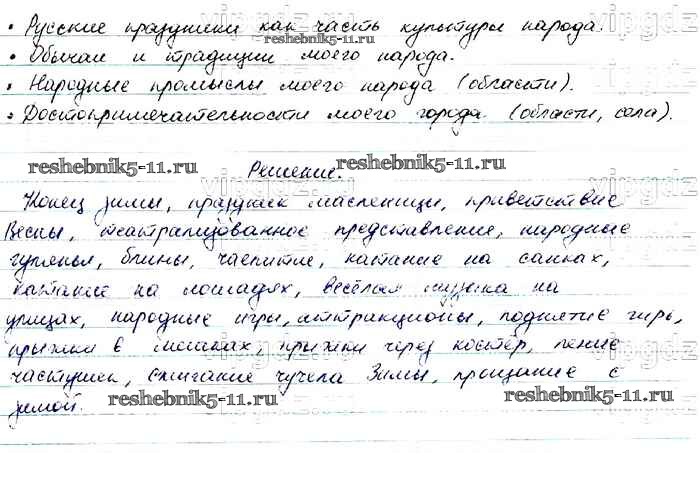 • Русские праздники как часть культуры народа.
reshebnik5-11.ru
vipgdz
• Обычаи и традиции моего народа.
• Народные промыслы моего народа (области).
• Достопримечательности моего города. (области, села).
reshebnik5-11.ru
Решение.
reshebnik5-11.ru
Конец зимы, праздник масленицы, приветствие
Весны, театрализованное представление, народные
гулянья, блины, чаепитие, катание на санках,
катание на лошадях, весёлая музыка на
улицах, народные игры, аттракционы, поднятие гирь,
прыжки в мешках, прыжки через костёр, пение
частушек, сжигание чучела Зимы, прощание с
зимой.
reshebnik5-11.ru
reshebnik5-11.ru